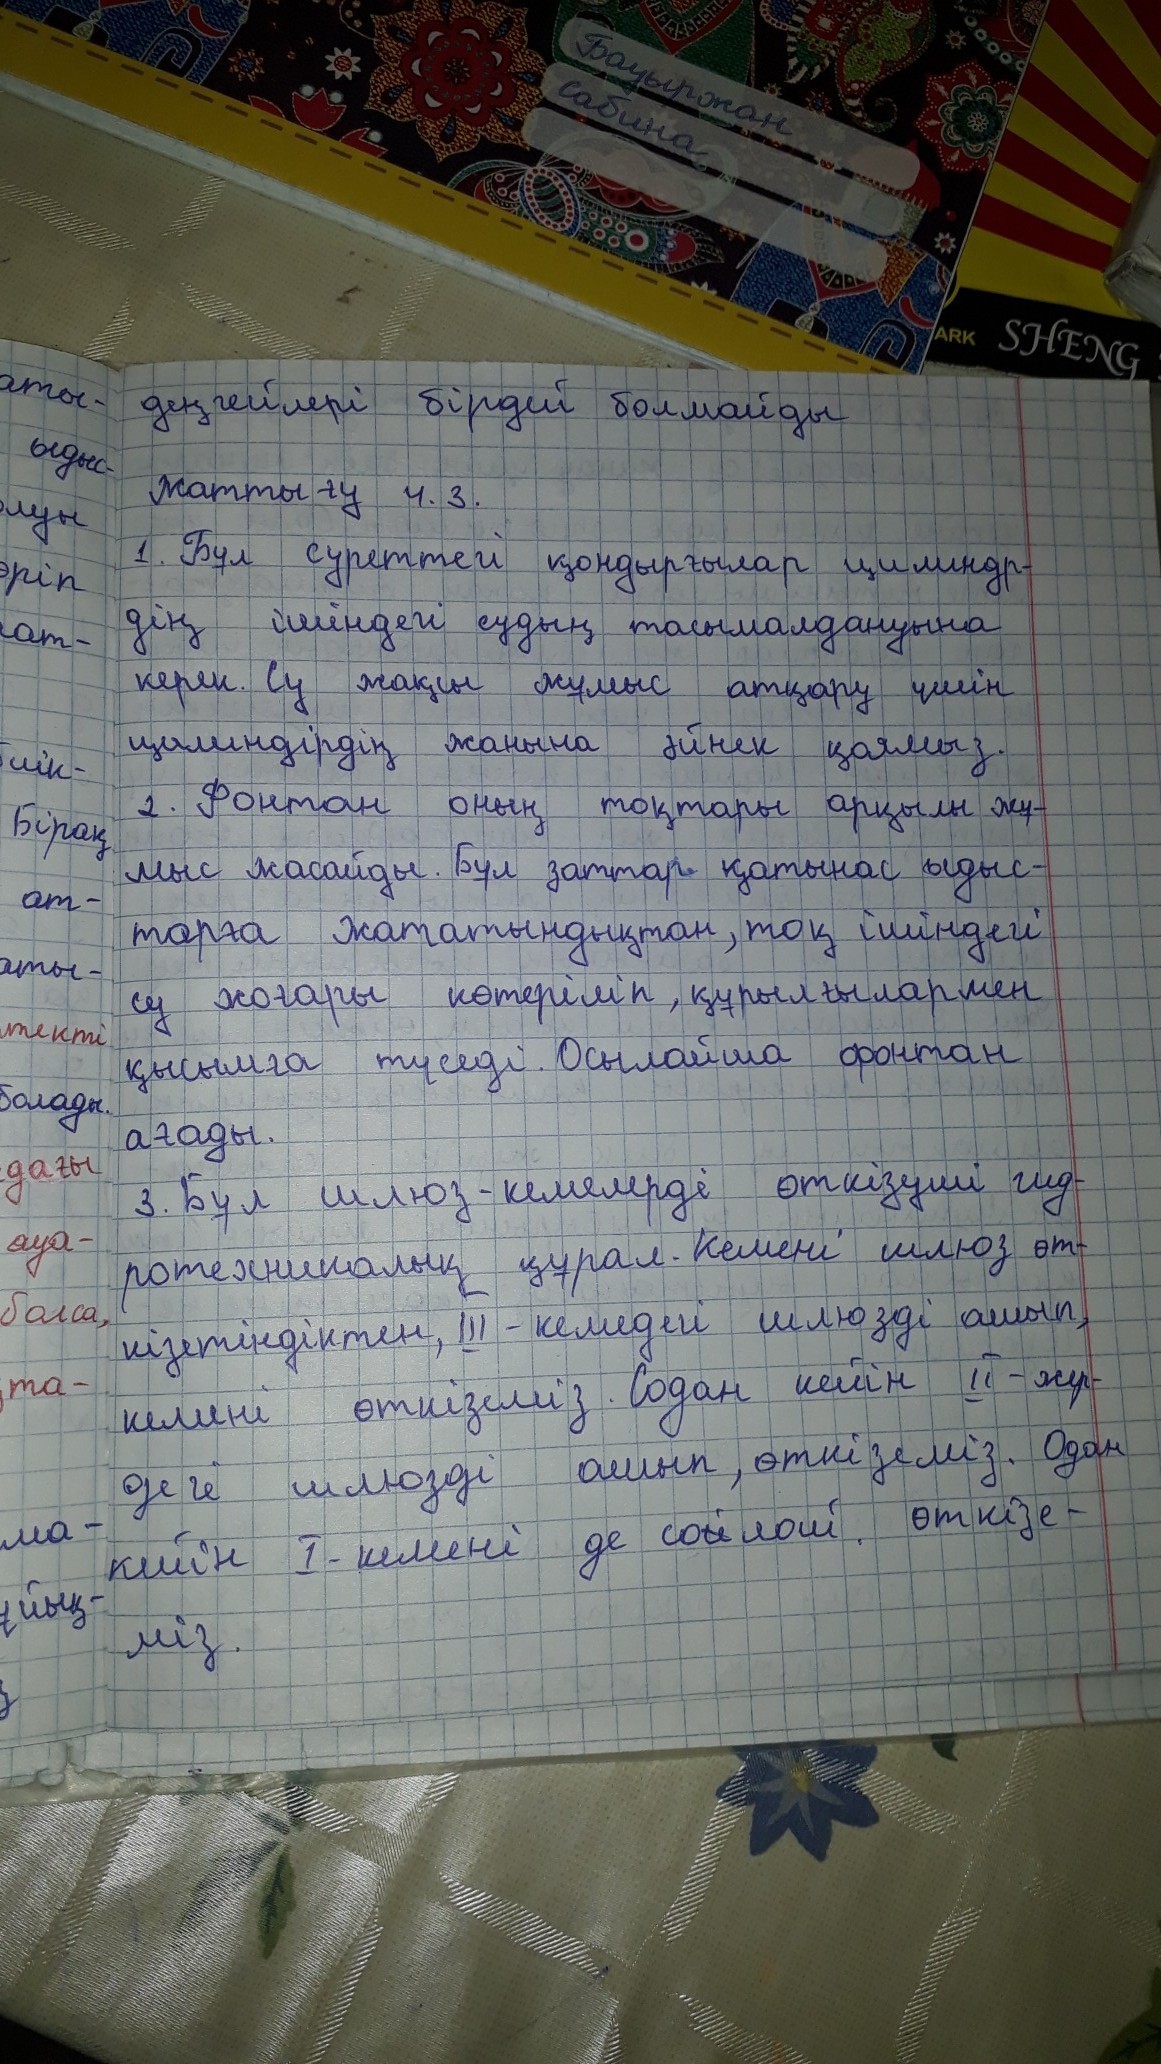 Бауыржан
сабина
ARK SHENG
деңгейлері бірдей болмайды
Жаттығу 4.3.
1. Бұл суреттегі қондырғылар цилиндр-
дің ішіндегі судың тасымалдануына
керек. Су жақсы жұмыс атқару үшін
цилиндірдің жанына әйнек қоямыз.
2. Фонтан оның тоқтары арқылы жұ-
мыс жасайды. Бұл заттар қатынас ыдыс-
тарға жататындықтан, тоқ ішіндегі
су жоғары көтеріліп, құрылғылармен
қысымға түседі. Осылайша фонтан
ағады.
3. Бұл шлюз-кемелерді өткізуші гид-
ротехникалық құрал. Кемені шлюз өт-
кізетіндіктен, III-кемедегі шлюзді ашып,
кемені өткіземіз. Содан кейін II-жүр-
дегі шлюзді ашып, өткіземіз. Одан
кейін I-кемені де солай өткізе-
міз.
аты-
ыдыс-
олуы
еріп
ат-
Бірақ
ат-
аты-
текті
болады.
дағы
ауа-
болса,
та-
ма-